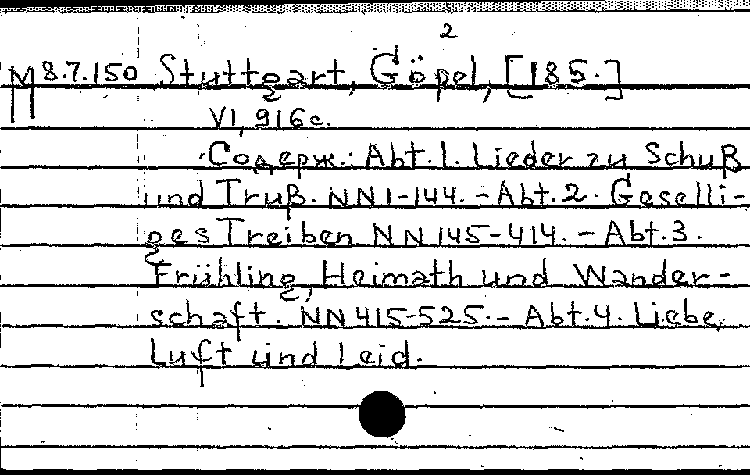 2
M 8.7.150 Stuttgart, Göpel, [185.]
VI, 916 c.
Содерж.: Abt. 1. Lieder zu Schuß
und Truß. NN 1-144. - Abt. 2. Geselli-
ges Treiben NN 145-414. - Abt. 3.
Frühling, Heimath und Wander-
schaft. NN 415-525. - Abt. 4. Liebe,
Luft und Leid.